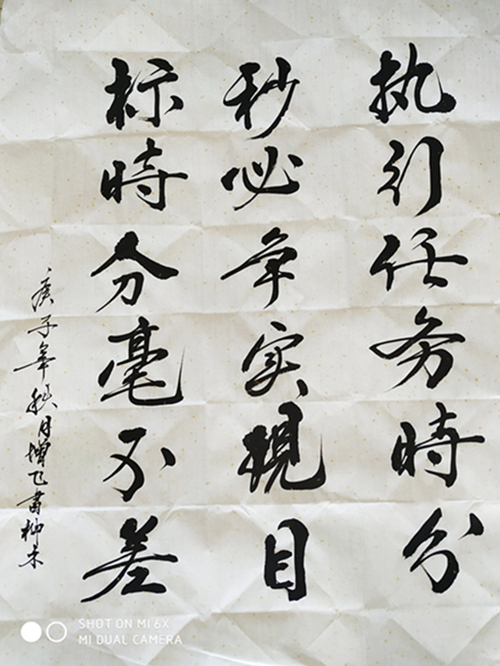 执行任务時分
秒必争实現目
标時分毫不差
庚子年秋月增飞書柳木
SHOT ON MI 6X
MI DUAL CAMERA